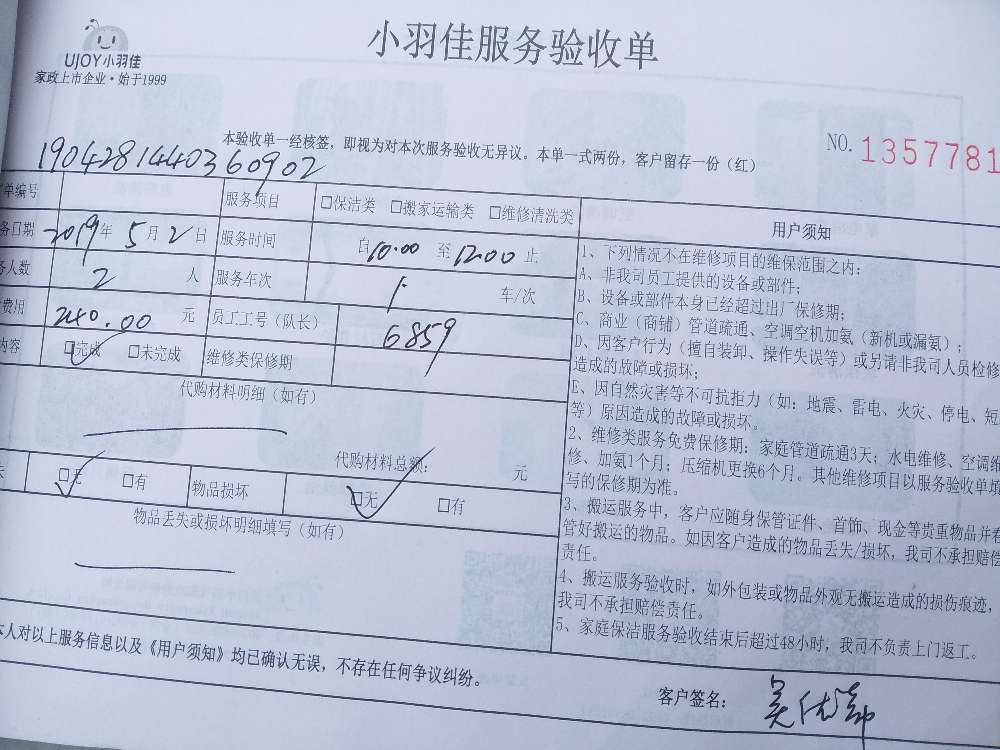 UJOY小羽佳
家政上市企业·始于1999
小羽佳服务验收单
本验收单一经核签，即视为对本次服务验收无异议。本单一式两份，客户留存一份（红）
NO. 13577781
1904281440360902
单编号 服务项目 □保洁类 □搬家运输类 □维修清洗类
务日期 2019年 5月 2日 服务时间 自10:00 至12:00 止
务人数 2 人 服务车次 车/次
费用 240.00 元 员工工号（队长） 6859
内容 □完成 □未完成 维修类保修期
代购材料明细（如有）
代购材料总额： 元
失 □无 □有 物品损坏 □无 □有
物品丢失或损坏明细填写（如有）
用户须知
1、下列情况不在维修项目的维保范围之内：
A、非我司员工提供的设备或部件；
B、设备或部件本身已经超过出厂保修期；
C、商业（商铺）管道疏通、空调空机加氨（新机或漏氨）；
D、因客户行为（擅自装卸、操作失误等）或另请非我司人员检修
造成的故障或损坏；
E、因自然灾害等不可抗拒力（如：地震、雷电、火灾、停电、短
等）原因造成的故障或损坏。
2、维修类服务免费保修期：家庭管道疏通3天；水电维修、空调维
修、加氨1个月；压缩机更换6个月。其他维修项目以服务验收单填
写的保修期为准。
3、搬运服务中，客户应随身保管证件、首饰、现金等贵重物品并看
管好搬运的物品。如因客户造成的物品丢失/损坏，我司不承担赔偿
责任。
4、搬运服务验收时，如外包装或物品外观无搬运造成的损伤痕迹，
我司不承担赔偿责任。
5、家庭保洁服务验收结束后超过48小时，我司不负责上门返工。
本人对以上服务信息以及《用户须知》均已确认无误，不存在任何争议纠纷。
客户签名：